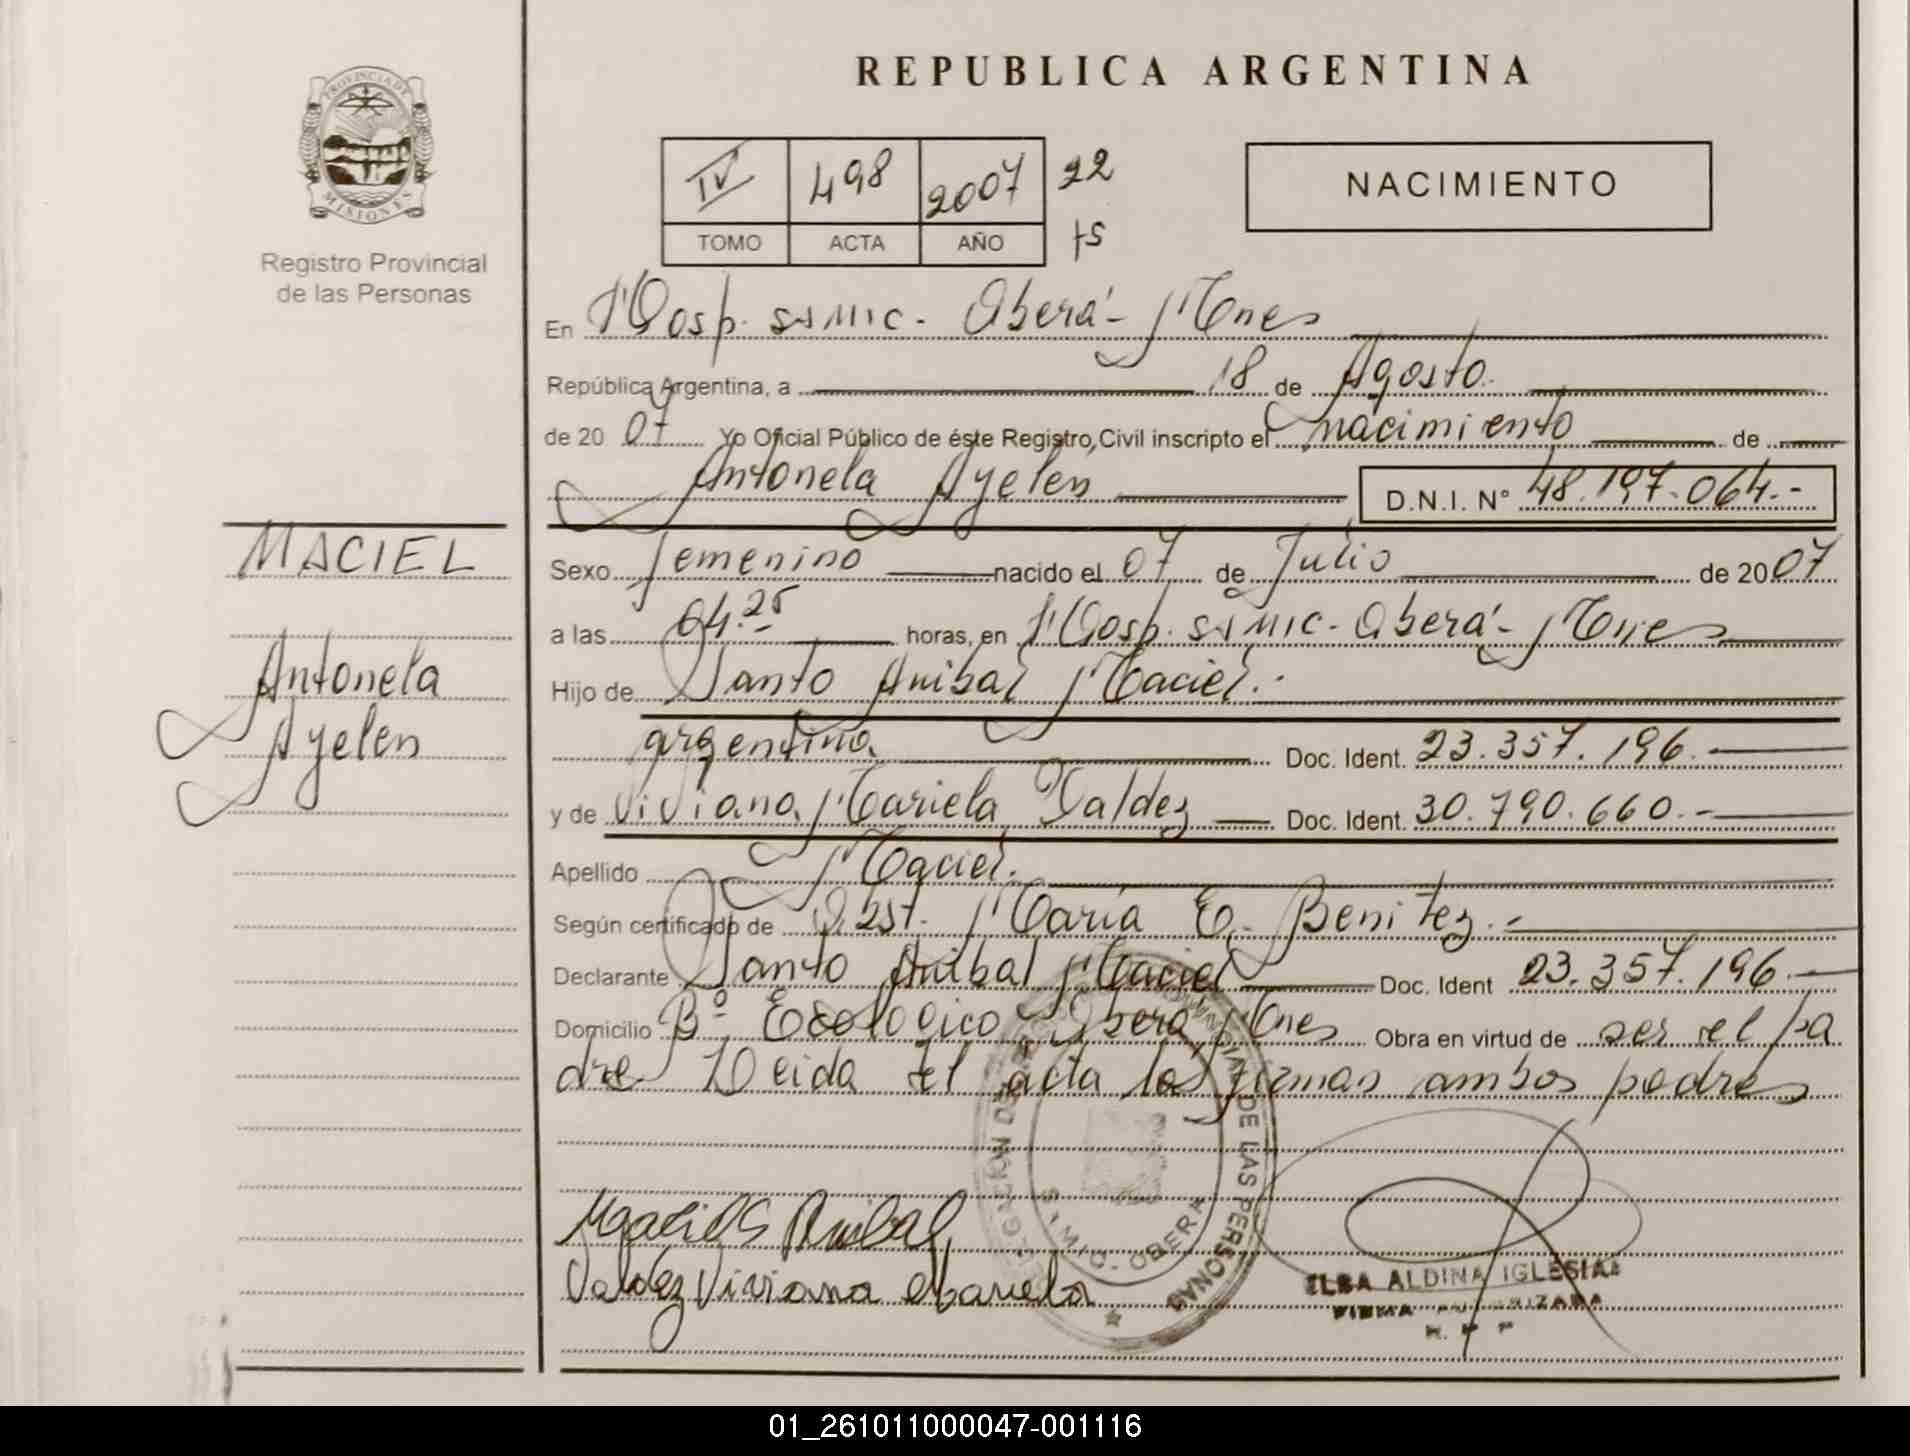 PROVINCIA DE
MISIONES
Registro Provincial
de las Personas
MACIEL
Antonela
Ayelen
REPUBLICA ARGENTINA
IV 498 2007 22
TOMO ACTA AÑO
NACIMIENTO
En Hosp. SAMIC - Oberá - Mnes
República Argentina, a 18 de Agosto
de 2007 Yo Oficial Público de éste Registro Civil inscripto el nacimiento de
Antonela Ayelen D.N.I. N° 48.197.064.-
Sexo femenino nacido el 07 de Julio de 2007
a las 04.25 horas, en Hosp. SAMIC - Oberá - Mnes
Hijo de Santo Anibal Maciel.-
argentino. Doc. Ident. 23.357.196.-
y de Viviana Mariela Valdez Doc. Ident. 30.790.660.-
Apellido Maciel.
Según certificado de Obst. María E. Benitez.-
Declarante Santo Anibal Maciel Doc. Ident 23.357.196.-
Domicilio B° Ecologico Oberá Mnes Obra en virtud de ser el pa
dre Leida el acta la firman ambos padres
DE LAS PERSONAS
OBERA
Anibal
Valdez Viviana Mariela
ILBA ALDINA IGLESIAS
FIRMA AUTORIZADA
R. P. P
01_261011000047-001116